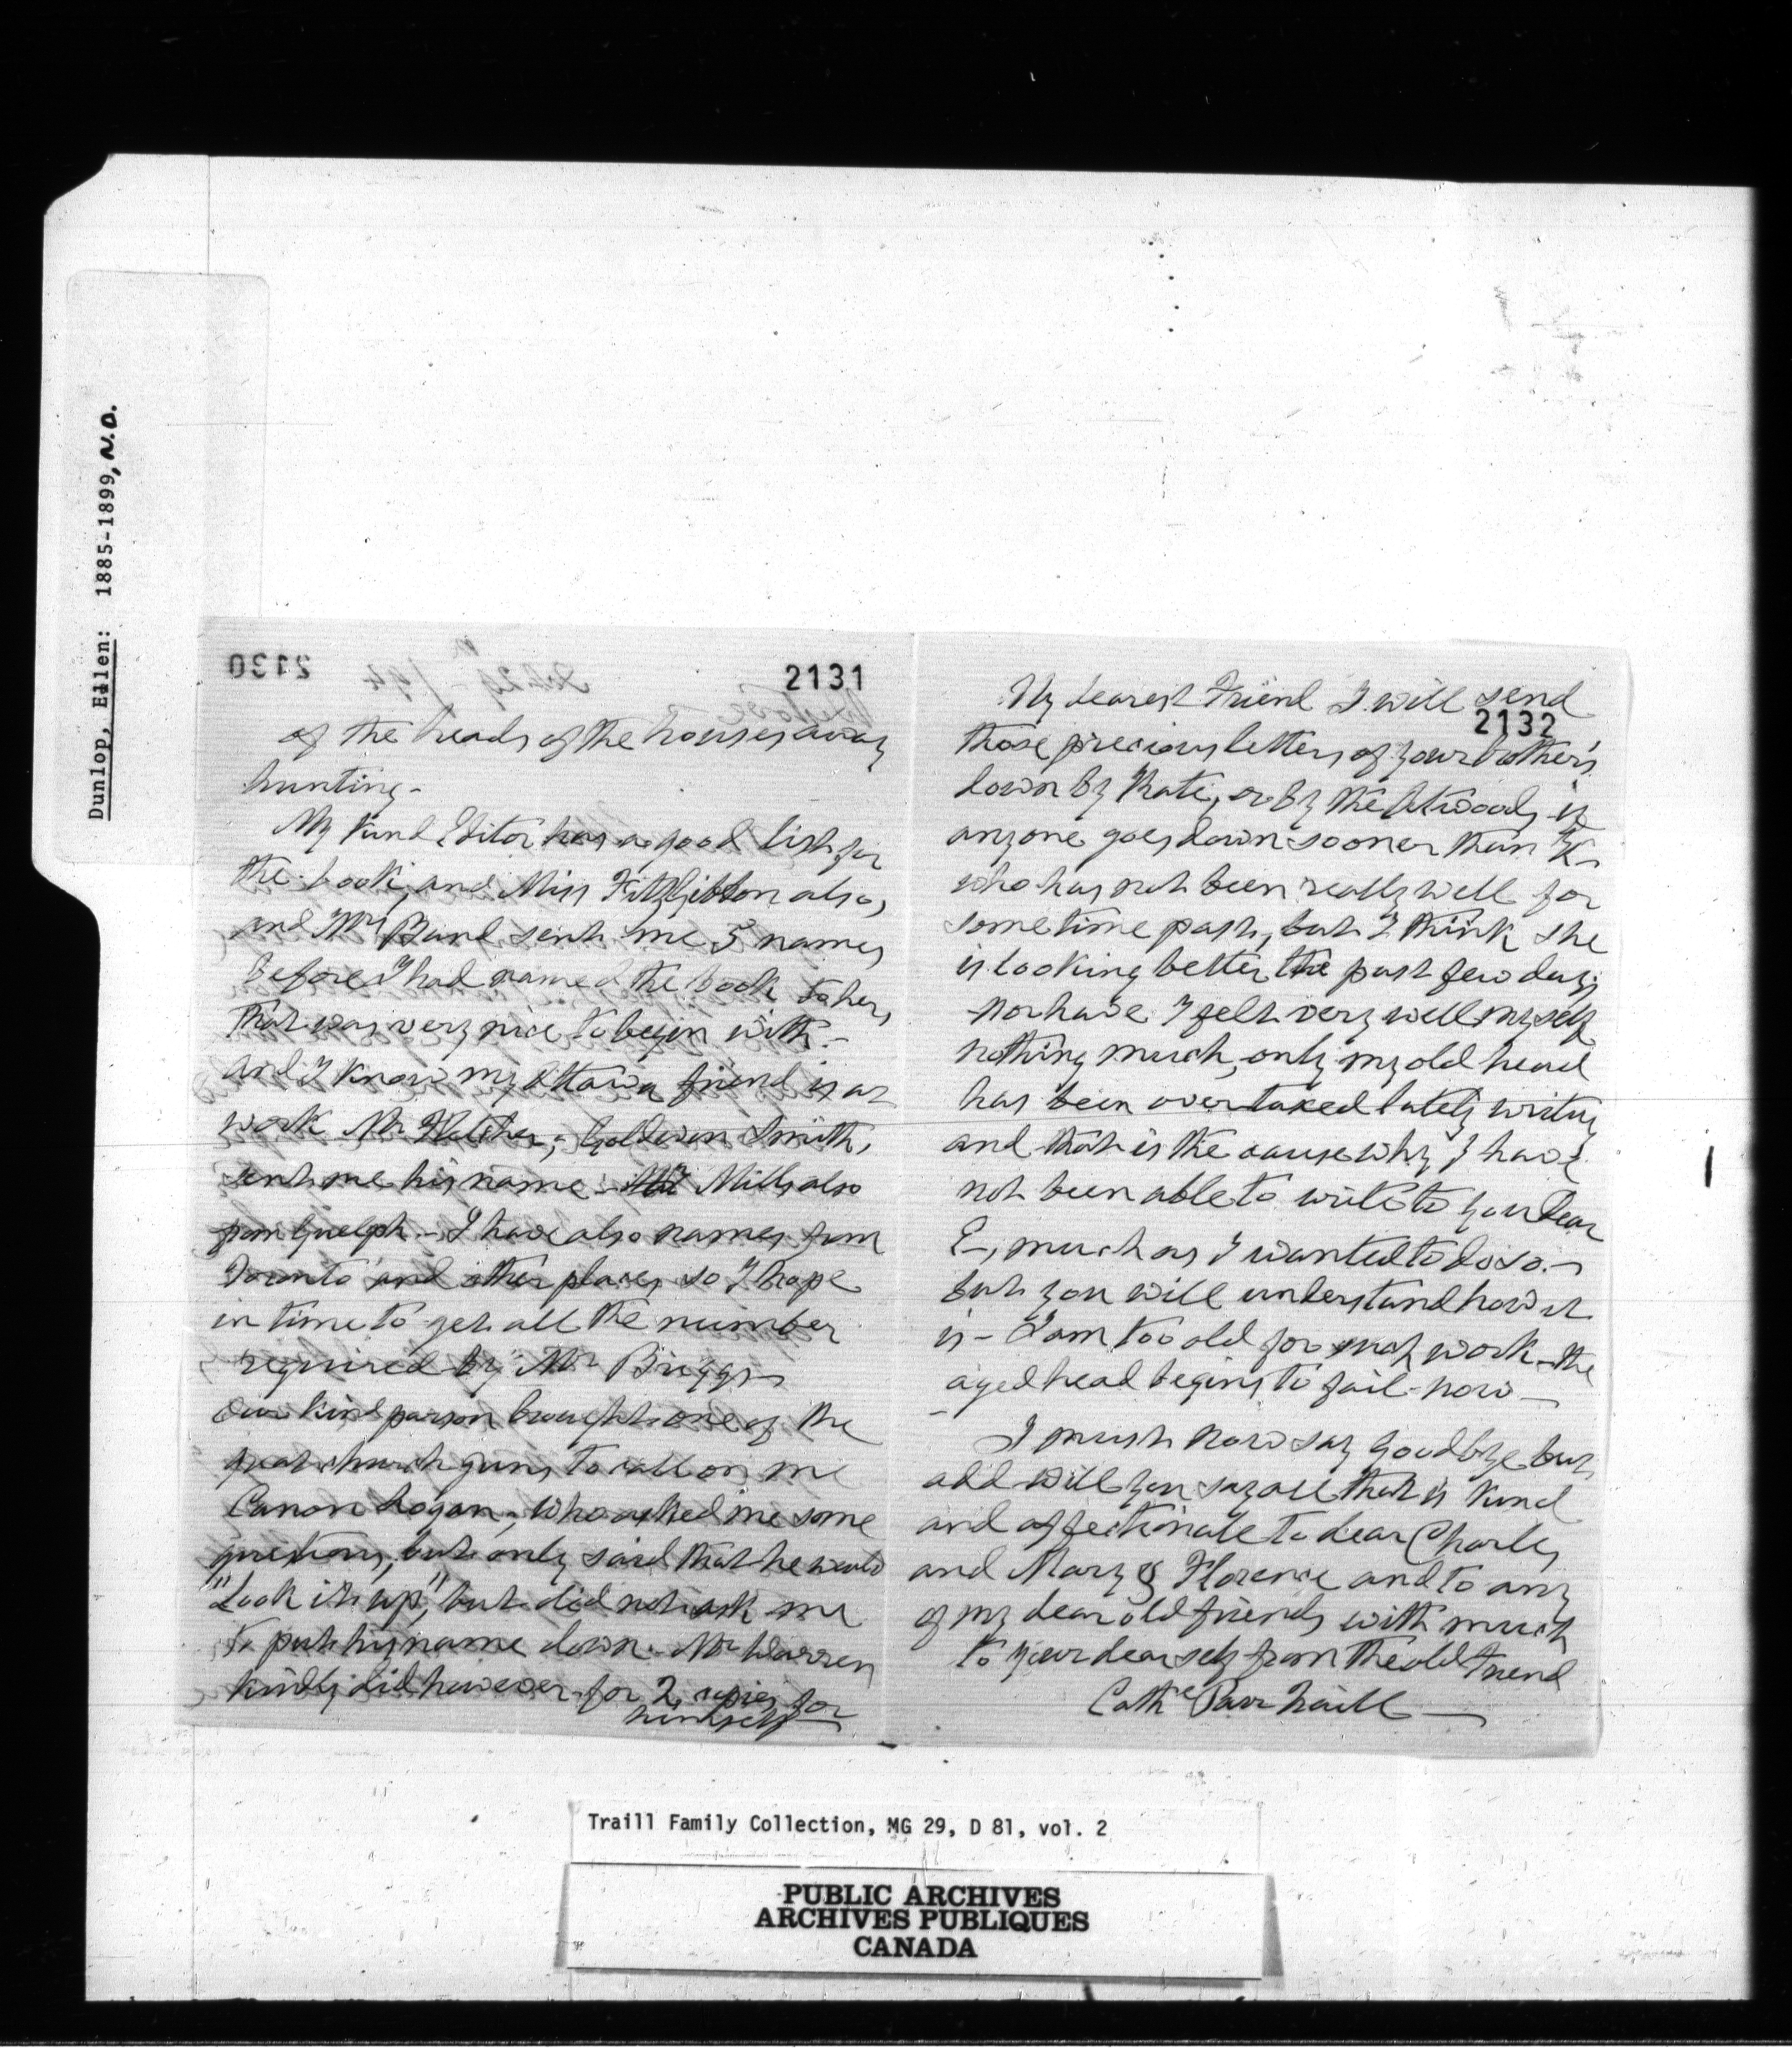 Dunlop, Ellen: 1885-1899, N.D.
2130
2131
of the heads of the houses away
hunting -
My kind Editor has a good list for
the book, and Miss FitzGibbon also,
and Mrs Band sent me 5 names
before I had named the book to her,
that was very nice to begin with. -
and I know my Ottawa friend is at
work Mr Fletcher, - Goldwin Smith,
sent me his name - Mills also
from Guelph - I have also names from
Toronto and other places so I hope
in time to get all the number
required by Mr Briggs -
Our kind parson brought one of the
great church guns to call on me
Canon Logan, who asked me some
questions, but only said that he would
"Look it up", but did not ask me
to put his name down. Mr Warren
kindly did however for 2 copies for
himself -
My dearest Friend I will send
2132
those precious letters of your brother's
down by Kate, or by the Atwoods if
anyone goes down sooner than K -
who has not been really well for
some time past, but I think she
is looking better the past few days
nor have I felt very well myself
nothing much, only my old head
has been overtaxed lately writing
and that is the cause why I have
not been able to write to you dear
E -, much as I wanted to do so. -
but you will understand how it
is - I am too old for much work - the
aged head begins to fail - now -
I must now say goodbye but
add will you say all that is kind
and affectionate to dear Charles
and Mary & Florence and to any
of my dear old friends with much
to your dear self from the old friend
Cathe Parr Traill -
Traill Family Collection, MG 29, D 81, vol. 2
PUBLIC ARCHIVES
ARCHIVES PUBLIQUES
CANADA